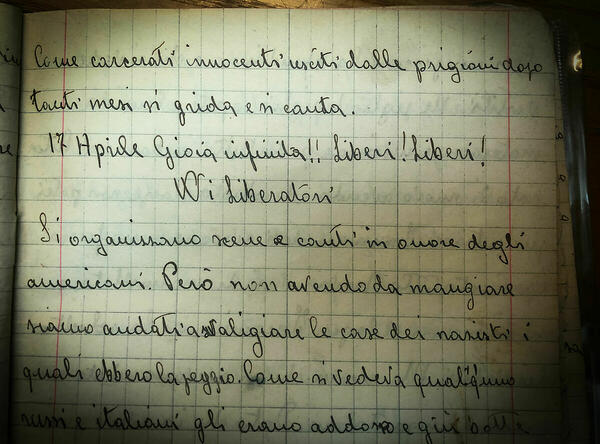 Come carcerati innocenti usciti dalle prigioni dopo
tanti mesi si grida e si canta.
17 Aprile Gioia infinita!! Liberi! Liberi!
W i Liberatori
Si organizzano scene e canti in onore degli
americani. Però non avendo da mangiare
siamo andati a svaligiare le case dei nazisti i
quali ebbero la peggio. Come si vedeva qualq'uno
russi e italiani gli erano addosso e giù botte